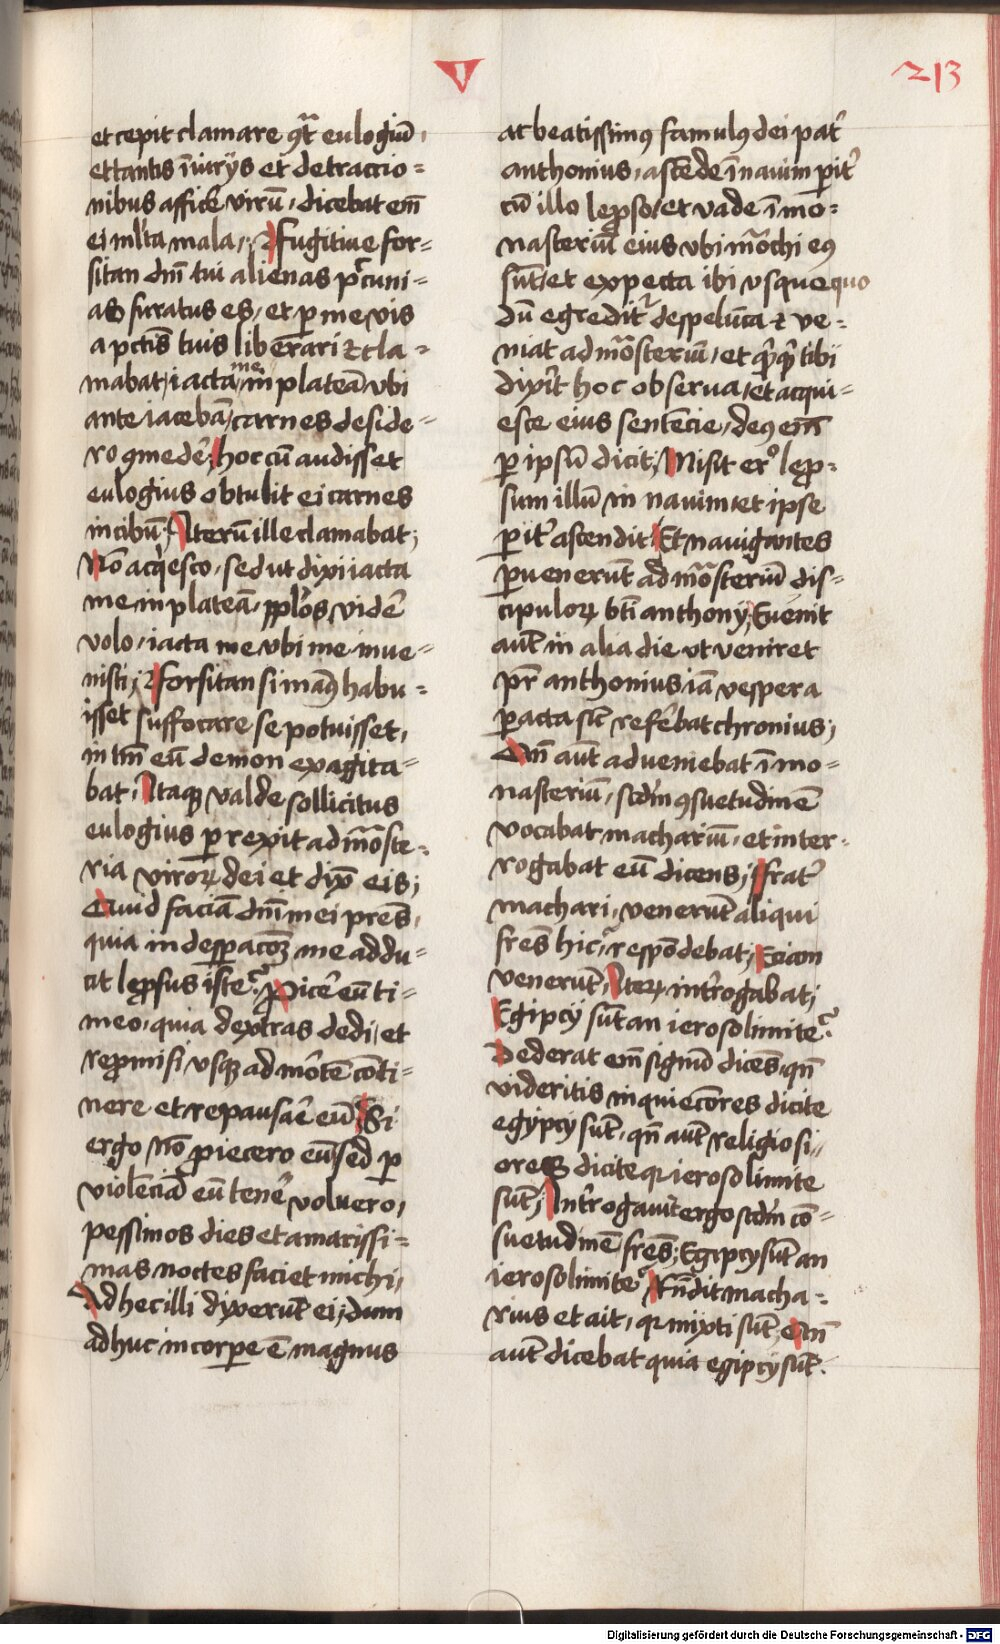 V
213
et cepit clamare ꝯt̃ eulogiū,
et tantis īiurijs et detractio=
nibus afficẽ virū, dicebat em̄
ei ml̃ta mala, Fugitiue for=
sitan dn̄i tui alienas pecuni=
as furatus es, et ꝑ me vis
a pctīs tuis liberari Et cla=
mabat, iacta me in plateā, vbi
ante iacebā, carnes deside=
ro ꝯmedẽ, hoc cū audisset
eulogius obtulit ei carnes
in cibū, Iterū ille clamabat;
Nō acq̇esco, sed ut dixi iacta
me in plateā, pp̃los vidẽ
volo, iacta me vbi me inue=
nisti; Et forsitan si man9 habu=
isset suffocare se potuisset,
in tm̄ eū demon exagita=
bat, Itaqꝫ valde sollicitus
eulogius perrexit ad mo̅ste=
ria viroꝝ dei et dix̄ eis;
Quid faciā dn̄i mei pr̄es,
quia in despaco̅ꝫ me addu=
cit leprosus iste? Proicẽ eū ti=
meo, quia dextras dedi, et
repromisi vsqꝫ ad mortē cōti=
nere et repausaẽ eū, Si
ergo nō proiecero eū, sed ꝑ
violenciā eū tenẽ voluero,
pessimos dies et amarissi=
mas noctes faciet michi,
Ad hec illi dixerūt ei; dum
adhuc in corpe ē magnus
at beatissim9 famul9 dei pat̃
anthonius, ascende ī nauim pit̃
cū illo leproso, et vade ī mo=
nasteriū eius vbi mo̅chi eꝯ
sūt, et expecta ibi vsquequo
dū egredit̃ de spelūca ⁊ ve=
niat ad mo̅steriū, et q̄q̄ tibi
dixit̃ hoc obserua, et acqui=
esce eius sentēcie, de9 em̄
ꝑ ipsū dicit; Misit er̊ lepro=
sum illū in nauim, et ipse
pit̃ ascendit, Et nauigantes
ꝑuenerūt ad mo̅steriū dis=
cipuloꝝ bt̄i anthonij, Euenit
aut̄ in alia die vt veniret
pr̄ anthonius iā vespera
ꝑacta sic̄ refẽbat chronius;
Qn̄ aut̄ adueniebat ī mo=
nasteriū, scd̄m ꝯsuetudinē
vocabat machariū, et inter=
rogabat eū dicens; Frat̃
machari, venerūt aliqui
fr̄es hic, ⁊ respōdebat; Eciam
venerūt, Iteꝝ int̃rogabat;
Egiptij sūt an ierosolimite?
Dederat em̄ signū dicēs, qn̄
videritis inquiecōres dicite
egyptij sūt, qn̄ aut̄ religiosi=
ores dicite qꝫ ierosolimite
sūt; Int̃rogauit ergo scd̄m cō=
suetudinē fr̄es, Egiptij sūt an
ierosolimite? Rn̄dit macha=
rius et ait, qꝫ mixti sūt, Qn̄
aut̄ dicebat quia egiptij sūt.
Digitalisierung gefördert durch die Deutsche Forschungsgemeinschaft - DFG